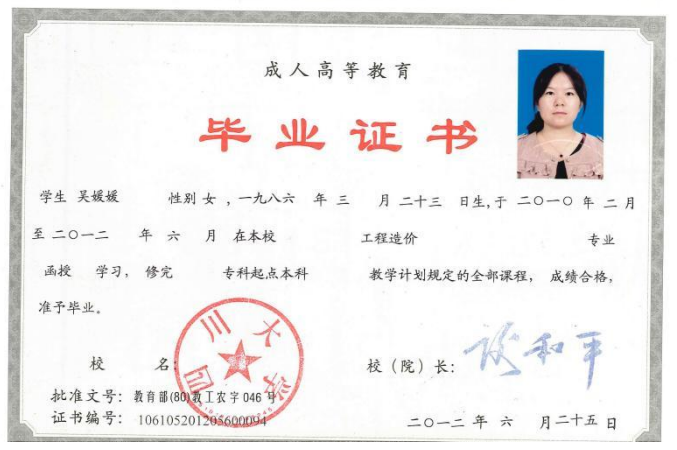 成人高等教育
毕业证书
学生 吴媛媛 性别 女 ，一九八六 年 三 月 二十三 日生，于 二〇一〇 年 二 月
至 二〇一二 年 六 月 在本校 工程造价 专业
函授 学习， 修完 专科起点本科 教学计划规定的全部课程， 成绩合格，
准予毕业。
四川大学
校 名： 校（院）长： 谢和平
批准文号： 教育部(80)教工农字 046 号
证书编号： 106105201205600094 二〇一二 年 六 月二十五 日